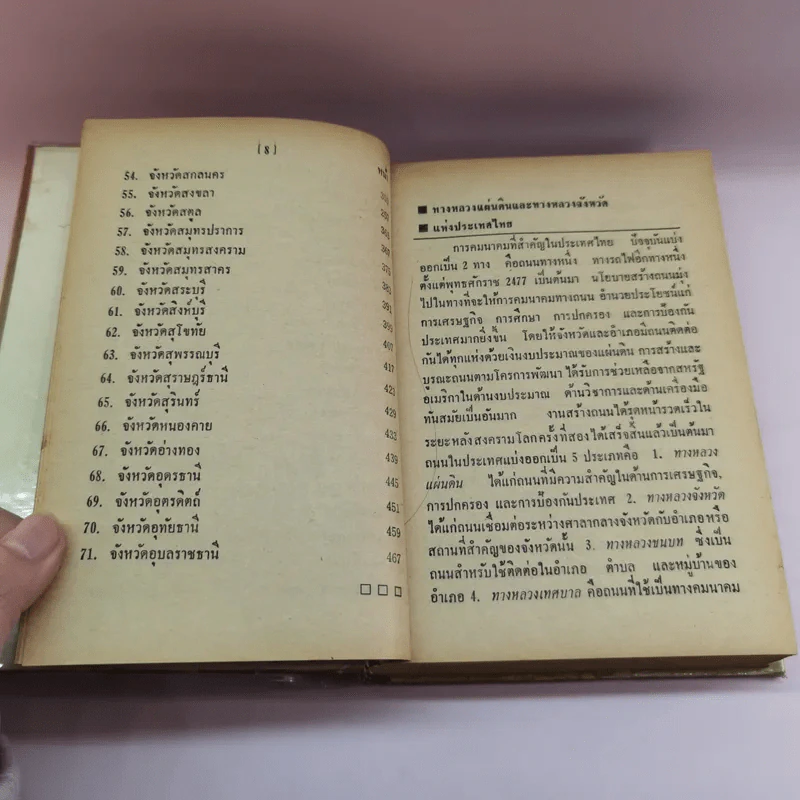 (8)
หน้า
54. จังหวัดสกลนคร
55. จังหวัดสงขลา
56. จังหวัดสตูล
57. จังหวัดสมุทรปราการ
58. จังหวัดสมุทรสงคราม
59. จังหวัดสมุทรสาคร 375
60. จังหวัดสระบุรี
61. จังหวัดสิงห์บุรี 391
62. จังหวัดสุโขทัย 399
63. จังหวัดสุพรรณบุรี 407
64. จังหวัดสุราษฎร์ธานี 417
65. จังหวัดสุรินทร์ 421
66. จังหวัดหนองคาย 429
67. จังหวัดอ่างทอง 433
68. จังหวัดอุดรธานี 439
69. จังหวัดอุตรดิตถ์ 445
70. จังหวัดอุทัยธานี 451
71. จังหวัดอุบลราชธานี 459
467
ทางหลวงแผ่นดินและทางหลวงจังหวัด
แห่งประเทศไทย
การคมนาคมที่สำคัญในประเทศไทย ปัจจุบันแบ่ง
ออกเป็น 2 ทาง คือถนนทางหนึ่ง ทางรถไฟอีกทางหนึ่ง
ตั้งแต่พุทธศักราช 2477 เป็นต้นมา นโยบายสร้างถนนมุ่ง
ไปในทางที่จะให้การคมนาคมทางถนน อำนวยประโยชน์แก่
การเศรษฐกิจ การศึกษา การปกครอง และการป้องกัน
ประเทศมากยิ่งขึ้น โดยให้จังหวัดและอำเภอมีถนนติดต่อ
กันได้ทุกแห่งด้วยเงินงบประมาณของแผ่นดิน การสร้างและ
บูรณะถนนตามโครงการพัฒนา ได้รับการช่วยเหลือจากสหรัฐ
อเมริกาในด้านงบประมาณ ด้านวิชาการและด้านเครื่องมือ
ทันสมัยเป็นอันมาก งานสร้างถนนได้รุดหน้ารวดเร็วใน
ระยะหลังสงครามโลกครั้งที่สอง ได้เสร็จสิ้นแล้วเป็นต้นมา
ถนนในประเทศแบ่งออกเป็น 5 ประเภทคือ 1. ทางหลวง
แผ่นดิน ได้แก่ถนนที่มีความสำคัญในด้านการเศรษฐกิจ,
การปกครอง และการป้องกันประเทศ 2. ทางหลวงจังหวัด
ได้แก่ถนนเชื่อมต่อระหว่างศาลากลางจังหวัดกับอำเภอหรือ
สถานที่สำคัญของจังหวัดนั้น 3. ทางหลวงชนบท ซึ่งเป็น
ถนนสำหรับใช้ติดต่อในอำเภอ ตำบล และหมู่บ้านของ
อำเภอ 4. ทางหลวงเทศบาล คือถนนที่ใช้เป็นทางคมนาคม